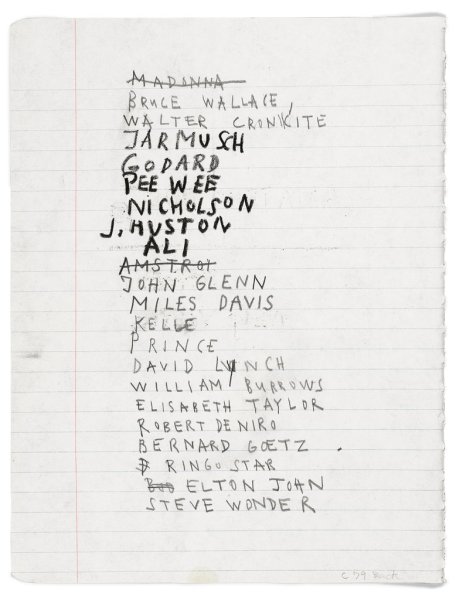 MADONNA
BRUCE WALLACE,
WALTER CRONKITE
JARMUSH
GODARD
PEE WEE
NICHOLSON
J. HUSTON
ALI
AMSTROI
JOHN GLENN
MILES DAVIS
KELLE
PRINCE
DAVID LYNCH
WILLIAM BURROWS
ELISABETH TAYLOR
ROBERT DENIRO
BERNARD GOETZ .
RINGO STAR
ELTON JOHN
STEVE WONDER
C 79 Back